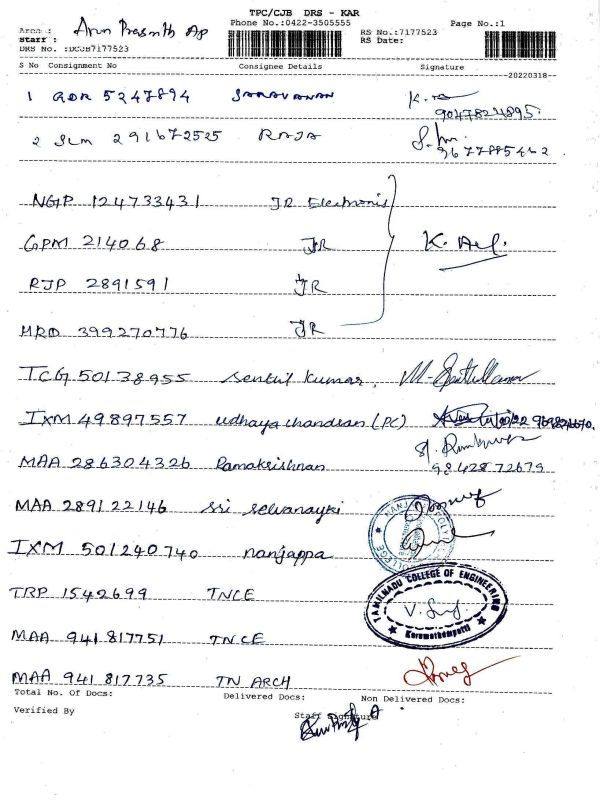 TPC/CJB DRS - KAR
Phone No.:0422-3505555
Page No.:1
Area :
Staff :
Arun Prasanth AP
RS No.:7177523
RS Date:
DRS No. :DCJB7177523
S No Consignment No Consignee Details Signature
20220318
1 QDR 5247894 SARAVANAN
9047824895.
2 SLM 291672525 RAJA
NGP 124733431 JR Electronis
GPM 214068 JR K. Aef.
RJP 2891591 JR
MRD 399270776 JR
TCG 50138955 Senthil Kumar,
IXM 49897557 udhaya chandran (PC)
MAA 286304326 Ramakrishnan 9842872679
MAA 289122146 Sri Selvanayki
IXM 501240740 nanjappa
TRP 1542699 TNCE
TAMILNADU COLLEGE OF ENGINEERING
Karumathampatti
MAA 941817751 TNCE
MAA 941.817735 TN ARCH
Total No. Of Docs: Delivered Docs: Non Delivered Docs:
Verified By Staff Signature